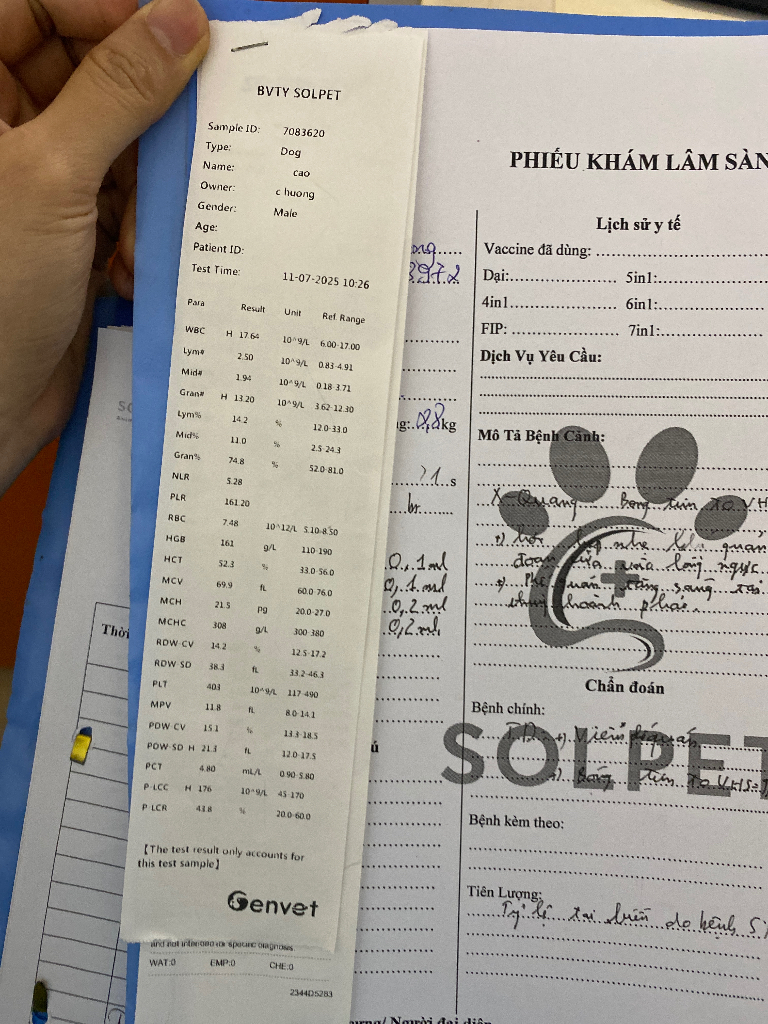 BVTY SOLPET
Sample ID: 7083620
Type: Dog
Name: cao
Owner: c huong
Gender: Male
Age:
Patient ID:
Test Time: 11-07-2025 10:26
Para Result Unit Ref. Range
WBC H 17.64 10^9/L 6.00-17.00
Lym# 2.50 10^9/L 0.83-4.91
Mid# 1.94 10^9/L 0.18-3.71
Gran# H 13.20 10^9/L 3.62-12.30
Lym% 14.2 % 12.0-33.0
Mid% 11.0 % 2.5-24.3
Gran% 74.8 % 52.0-81.0
NLR 5.28
PLR 161.20
RBC 7.48 10^12/L 5.10-8.50
HGB 161 g/L 110-190
HCT 52.3 % 33.0-56.0
MCV 69.9 fL 60.0-76.0
MCH 21.5 pg 20.0-27.0
MCHC 308 g/L 300-380
RDW-CV 14.2 % 12.5-17.2
RDW-SD 38.3 fL 33.2-46.3
PLT 403 10^9/L 117-490
MPV 11.8 fL 8.0-14.1
PDW-CV 15.1 % 13.3-18.5
PDW-SD H 21.3 fL 12.0-17.5
PCT 4.80 mL/L 0.90-5.80
P-LCC H 176 10^9/L 45-170
P-LCR 43.8 % 20.0-60.0
【The test result only accounts for
this test sample】
Genvet
and not intended for specific diagnoses.
WAT:0 EMP:0 CHE:0
2344D5283
PHIẾU KHÁM LÂM SÀN
Lịch sử y tế
Vaccine đã dùng:
Dại: 5in1:
4in1 6in1:
FIP: 7in1:
Dịch Vụ Yêu Cầu:
Mô Tả Bệnh Cảnh:
X-Quang Bóng tim to VH
Chẩn đoán
Bệnh chính:
Viêm
Bóng tim to VHS
SOLPET
Bệnh kèm theo:
Tiên Lượng:
Tỷ lệ tai biến do bệnh
3972
0,8kg
21 s
0,1ml
0,1ml
0,2ml
0,2ml
Thời